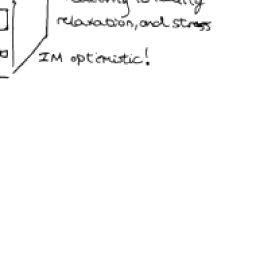 relaxation, and stress
IM optimistic!